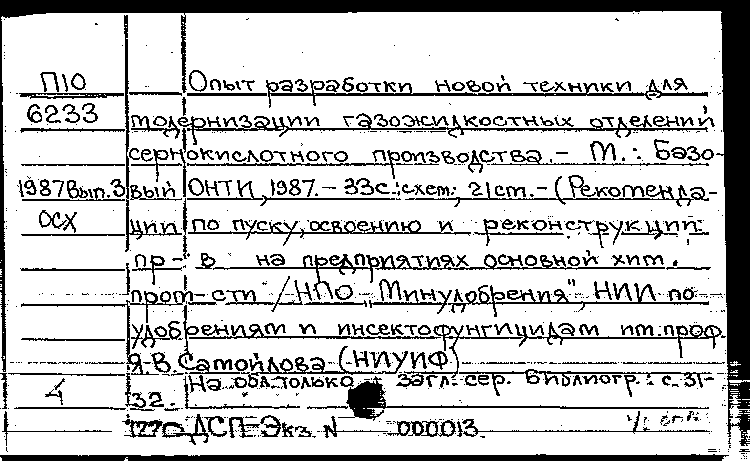 П10
6233
1987 Вып.3
ОСХ
4
Опыт разработки новой техники для
модернизации газожидкостных отделений
сернокислотного производства. - М.: Базо-
вый ОНТИ, 1987. - 33с.:схем; 21см. - (Рекоменда-
ции по пуску, освоению и реконструкции
пр-в на предприятиях основной хим.
пром-сти / НПО „Минудобрения", НИИ по
удобрениям и инсектофунгицидам им. проф.
Я.В. Самойлова (НИУИФ)
На обл. только загл. сер. Библиогр.: с. 31-
32.
ДСП - Экз. N 000013.